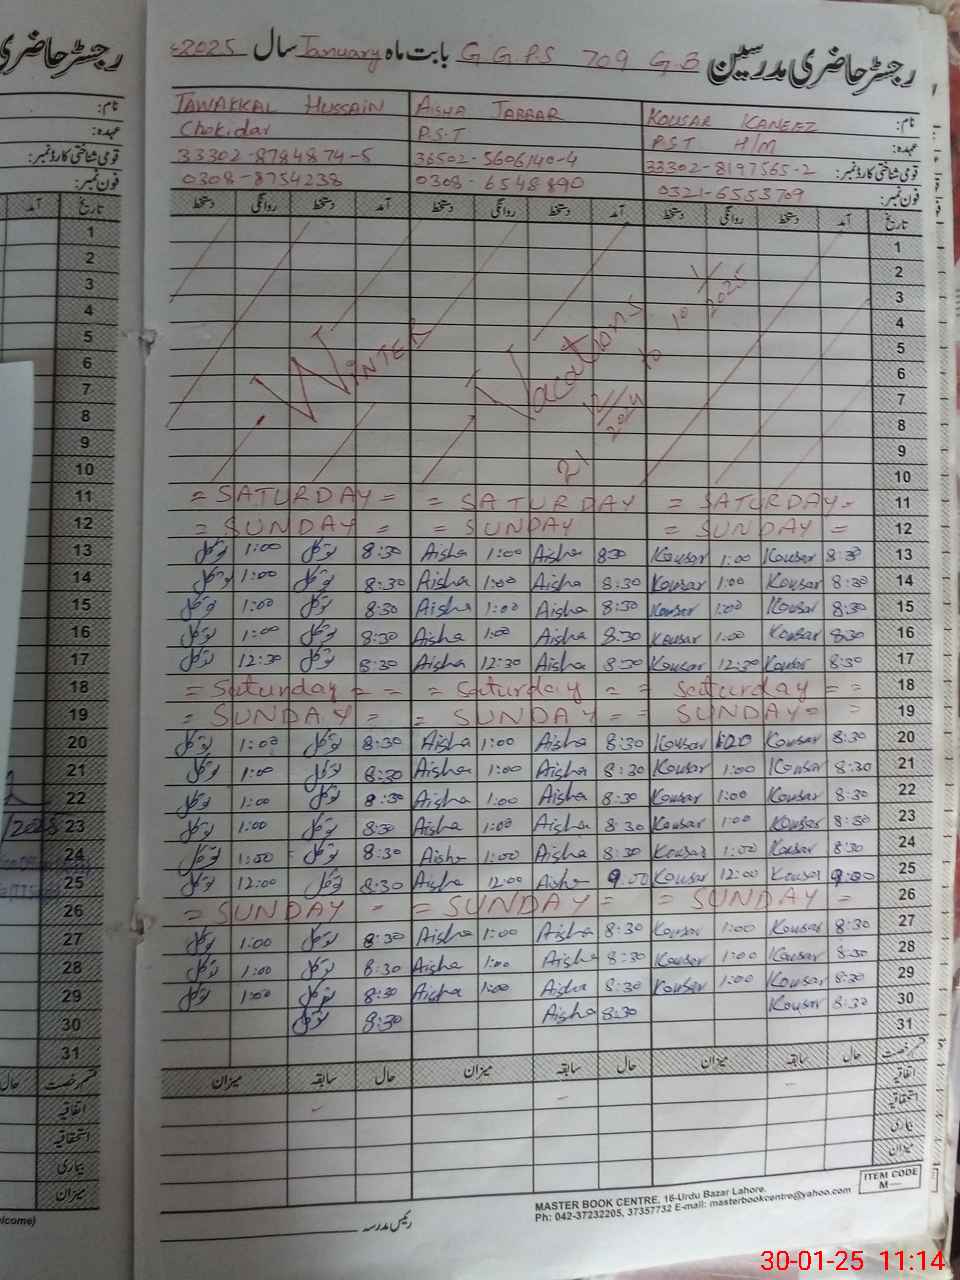 رجسٹر حاضری مدرسین G G P.S 709 G B بابت ماہ January سال 2025ء
نام: KOUSAR KANEEZ AISHA JABBAR TAWAKKAL HUSSAIN
عہدہ: PST H/M P.S.T Chokidar
قومی شناختی کارڈ نمبر: 33302-8197565-2 36502-5606140-4 33302-8784874-5
فون نمبر: 0321-6553709 0308-6548890 0308-8754238
تاریخ آمد دستخط روانگی دستخط آمد دستخط روانگی دستخط آمد دستخط روانگی دستخط
1
2
3
4
5
6
7
8
9
10
WINTER Vacations 21/12/2024 to 10/1/2025
11 = SATURDAY = = SATURDAY = SATURDAY =
12 = SUNDAY = = SUNDAY = SUNDAY =
13 8:30 Kousar 1:00 Kousar 8:30 Aisha 1:00 Aisha 8:30 توکل 1:00 توکل
14 8:30 Kousar 1:00 Kousar 8:30 Aisha 1:00 Aisha 8:30 توکل 1:00 توکل
15 8:30 Kousar 1:00 Kousar 8:30 Aisha 1:00 Aisha 8:30 توکل 1:00 توکل
16 8:30 Kousar 1:00 Kousar 8:30 Aisha 1:00 Aisha 8:30 توکل 1:00 توکل
17 8:30 Kousar 12:30 Kousar 8:30 Aisha 12:30 Aisha 8:30 توکل 12:30 توکل
18 = Saturday = = = Saturday = = Saturday = =
19 = SUNDAY = = SUNDAY = = SUNDAY = =
20 8:30 Kousar 1:00 Kousar 8:30 Aisha 1:00 Aisha 8:30 توکل 1:00 توکل
21 8:30 Kousar 1:00 Kousar 8:30 Aisha 1:00 Aisha 8:30 توکل 1:00 توکل
22 8:30 Kousar 1:00 Kousar 8:30 Aisha 1:00 Aisha 8:30 توکل 1:00 توکل
23 8:30 Kousar 1:00 Kousar 8:30 Aisha 1:00 Aisha 8:30 توکل 1:00 توکل
24 8:30 Kousar 1:00 Kousar 8:30 Aisha 1:00 Aisha 8:30 توکل 1:00 توکل
25 9:00 Kousar 12:00 Kousar 9:00 Aisha 12:00 Aisha 8:30 توکل 12:00 توکل
26 = SUNDAY - = SUNDAY = = SUNDAY =
27 8:30 Kousar 1:00 Kousar 8:30 Aisha 1:00 Aisha 8:30 توکل 1:00 توکل
28 8:30 Kousar 1:00 Kousar 8:30 Aisha 1:00 Aisha 8:30 توکل 1:00 توکل
29 8:30 Kousar 1:00 Kousar 8:30 Aisha 1:00 Aisha 8:30 توکل 1:00 توکل
30 8:30 Kousar 8:30 Aisha 8:30 توکل
31
قسم رخصت حال سابقہ میزان حال سابقہ میزان حال سابقہ میزان
اتفاقیہ
استحقاقیہ
بیماری
میزان
رئیس مدرسہ
MASTER BOOK CENTRE, 16-Urdu Bazar Lahore.
Ph: 042-37232205, 37357732 E-mail: masterbookcentre@yahoo.com
ITEM CODE
M—
30-01-25 11:14